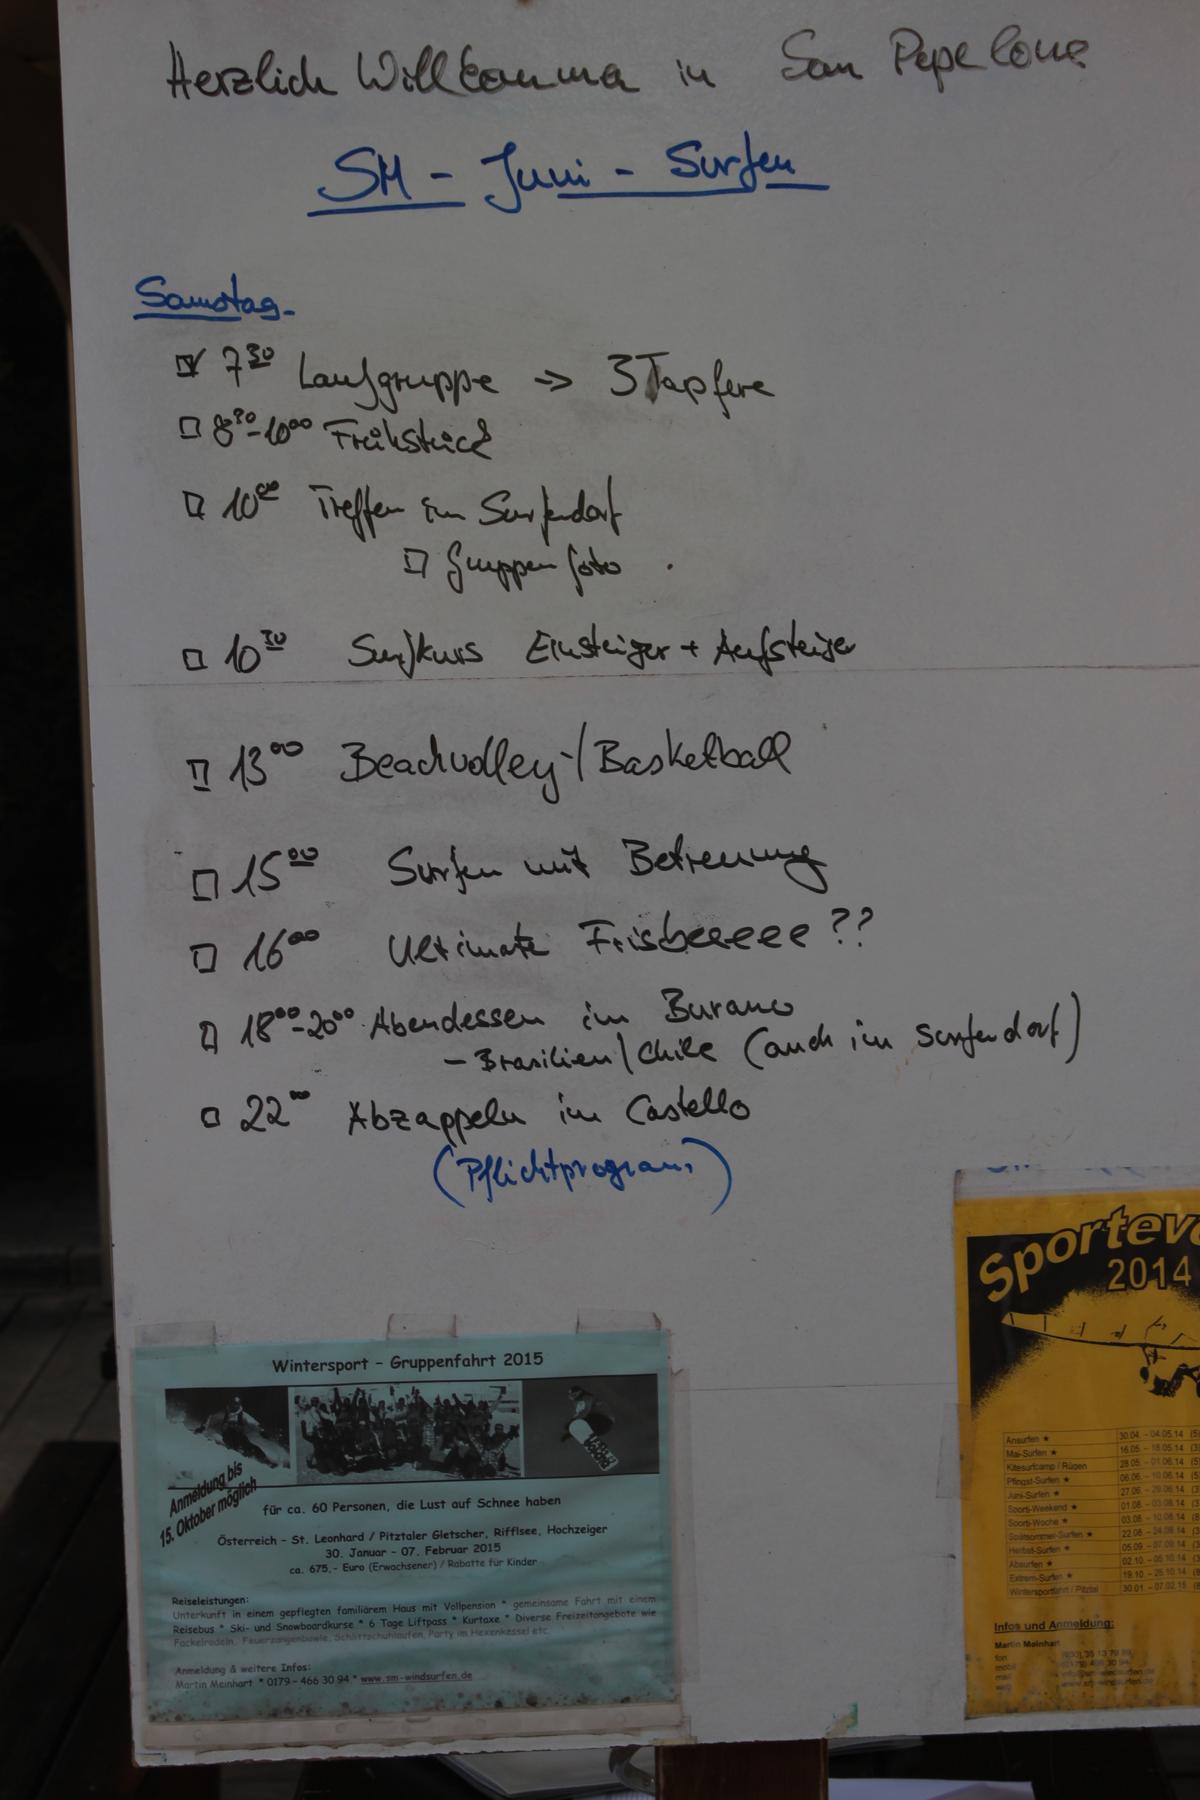 Herzlich Willkomma in San Pepelone
SM - Juni - Surfen
Samstag
7 30 Laufgruppe -> 3 Tapfere
8 30 - 10 00 Frühstück
10 00 Treffen im Surfendorf
Gruppenfoto
10 30 Surfkurs Einsteiger + Aufsteiger
13 00 Beachvolley-/Basketball
15 00 Surfen mit Betreuung
16 00 Ultimate Frisbeeeeee ??
18 00 - 20 00 Abendessen im Burano
- Brasilien/Chile (auch im Surfendorf)
22 00 Abzappeln im Castello
(Pflichtprogram)
Wintersport - Gruppenfahrt 2015
Anmeldung bis
15. Oktober möglich
für ca. 60 Personen, die Lust auf Schnee haben
Österreich - St. Leonhard / Pitztaler Gletscher, Rifflsee, Hochzeiger
30. Januar - 07. Februar 2015
ca. 675,- Euro (Erwachsener) / Rabatte für Kinder
Reiseleistungen:
Unterkunft in einem gepflegten familiärem Haus mit Vollpension * gemeinsame Fahrt mit einem
Reisebus * Ski- und Snowboardkurse * 6 Tage Liftpass * Kurtaxe * Diverse Freizeitangebote wie
Fackelrodeln, Feuerzangenbowle, Schlittschuhlaufen, Party im Hexenkessel etc.
Anmeldung & weitere Infos:
Martin Meinhart * 0179 - 466 30 94 * www.sm-windsurfen.de
Sporteve
2014
Ansurfen ★ 30.04. - 04.05.14
Mai-Surfen ★ 16.05. - 18.05.14
Kitesurfcamp / Rügen 28.05. - 01.06.14
Pfingst-Surfen ★ 06.06. - 10.06.14
Juni-Surfen ★ 27.06. - 29.06.14
Sport-Weekend ★ 01.08. - 03.08.14
Sport-Woche ★ 03.08. - 10.08.14
Spätsommer-Surfen ★ 22.08. - 24.08.14
Herbst-Surfen ★ 05.09. - 07.09.14
Absurfen ★ 02.10. - 05.10.14
Extrem-Surfen ★ 19.10. - 25.10.14
Wintersportfahrt / Pitztal 30.01. - 07.02.15
Infos und Anmeldung:
Martin Meinhart
fon
mobil
mail info@sm-windsurfen.de
web www.sm-windsurfen.de